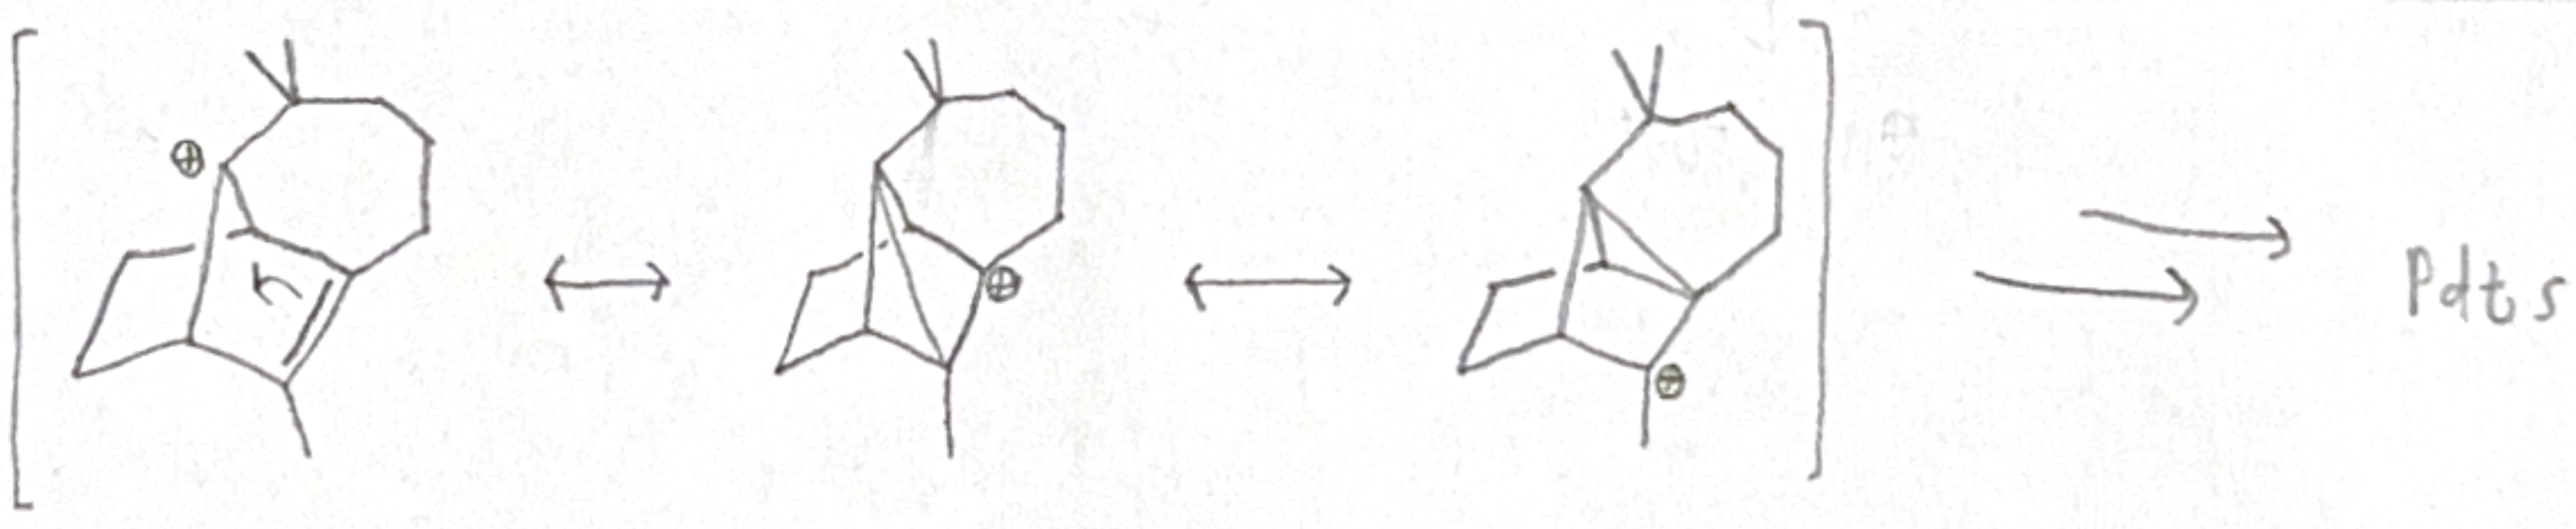 ⊕ ⊕ ⊕ Pdts